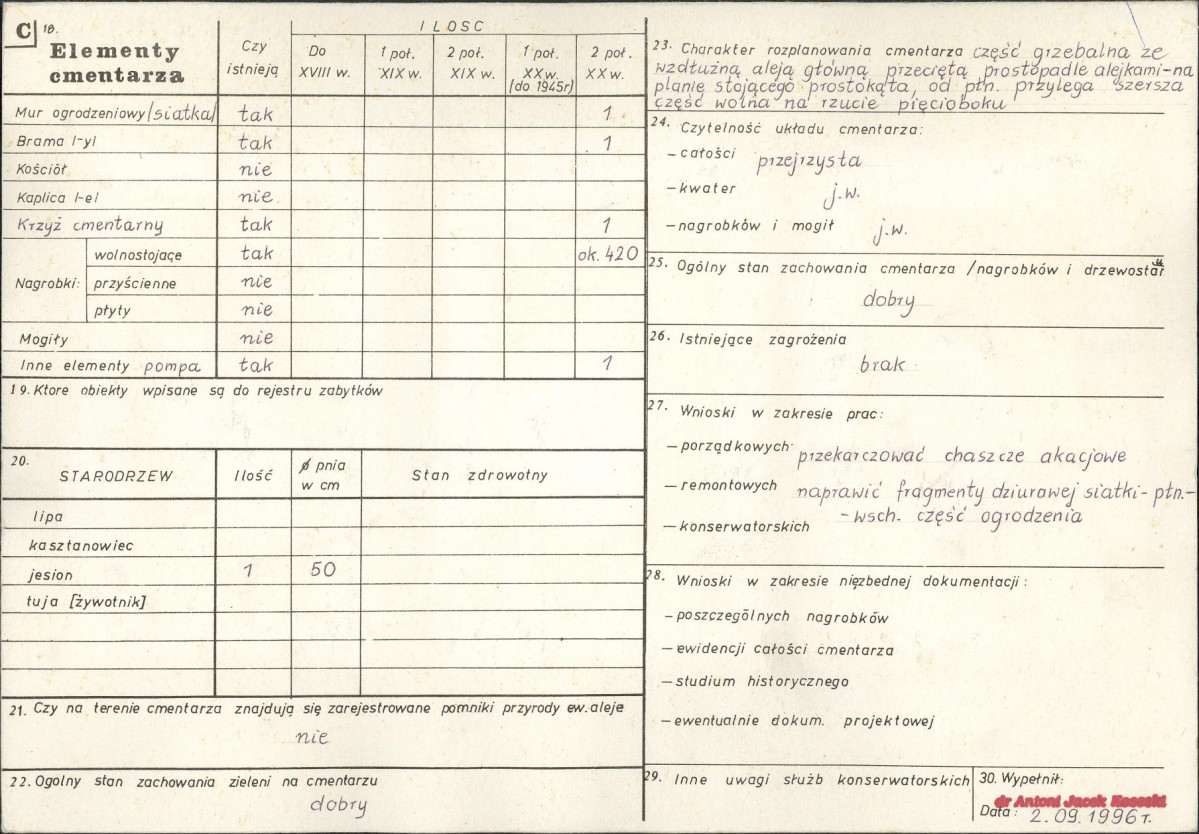 C 18.
Elementy cmentarza
Czy istnieją
ILOSC
Do XVIII w.
1 poł. XIX w.
2 poł. XIX w.
1 poł. XX w. (do 1945r)
2 poł. XX w.
Mur ogrodzeniowy/siatka/ tak 1
Brama /-y/ tak 1
Kościół nie
Kaplica /-e/ nie
Krzyż cmentarny tak 1
Nagrobki: wolnostojące tak ok. 420
przyścienne nie
płyty nie
Mogiły nie
Inne elementy pompa tak 1
19. Ktore obiekty wpisane są do rejestru zabytków
20. STARODRZEW Ilość ø pnia w cm Stan zdrowotny
lipa
kasztanowiec
jesion 1 50
tuja [żywotnik]
21. Czy na terenie cmentarza znajdują się zarejestrowane pomniki przyrody ew. aleje
nie
22. Ogolny stan zachowania zieleni na cmentarzu
dobry
23. Charakter rozplanowania cmentarza część grzebalna ze
wzdłużną aleją główną przeciętą prostopadle alejkami-na
planie stojącego prostokąta, od płn. przylega szersza
część wolna na rzucie pięcioboku
24. Czytelność układu cmentarza:
- całości przejrzysta
- kwater j.w.
- nagrobków i mogił j.w.
25. Ogólny stan zachowania cmentarza /nagrobków i drzewostanu
dobry
26. Istniejące zagrożenia
brak
27. Wnioski w zakresie prac:
- porządkowych przekarczować chaszcze akacjowe
- remontowych naprawić fragmenty dziurawej siatki - płn.-
-wsch. część ogrodzenia
- konserwatorskich
28. Wnioski w zakresie nięzbednej dokumentacji:
- poszczególnych nagrobków
- ewidencji całości cmentarza
- studium historycznego
- ewentualnie dokum. projektowej
29. Inne uwagi służb konserwatorskich
30. Wypełnił:
dr Antoni Jacek
Data: 2.09.1996 r.